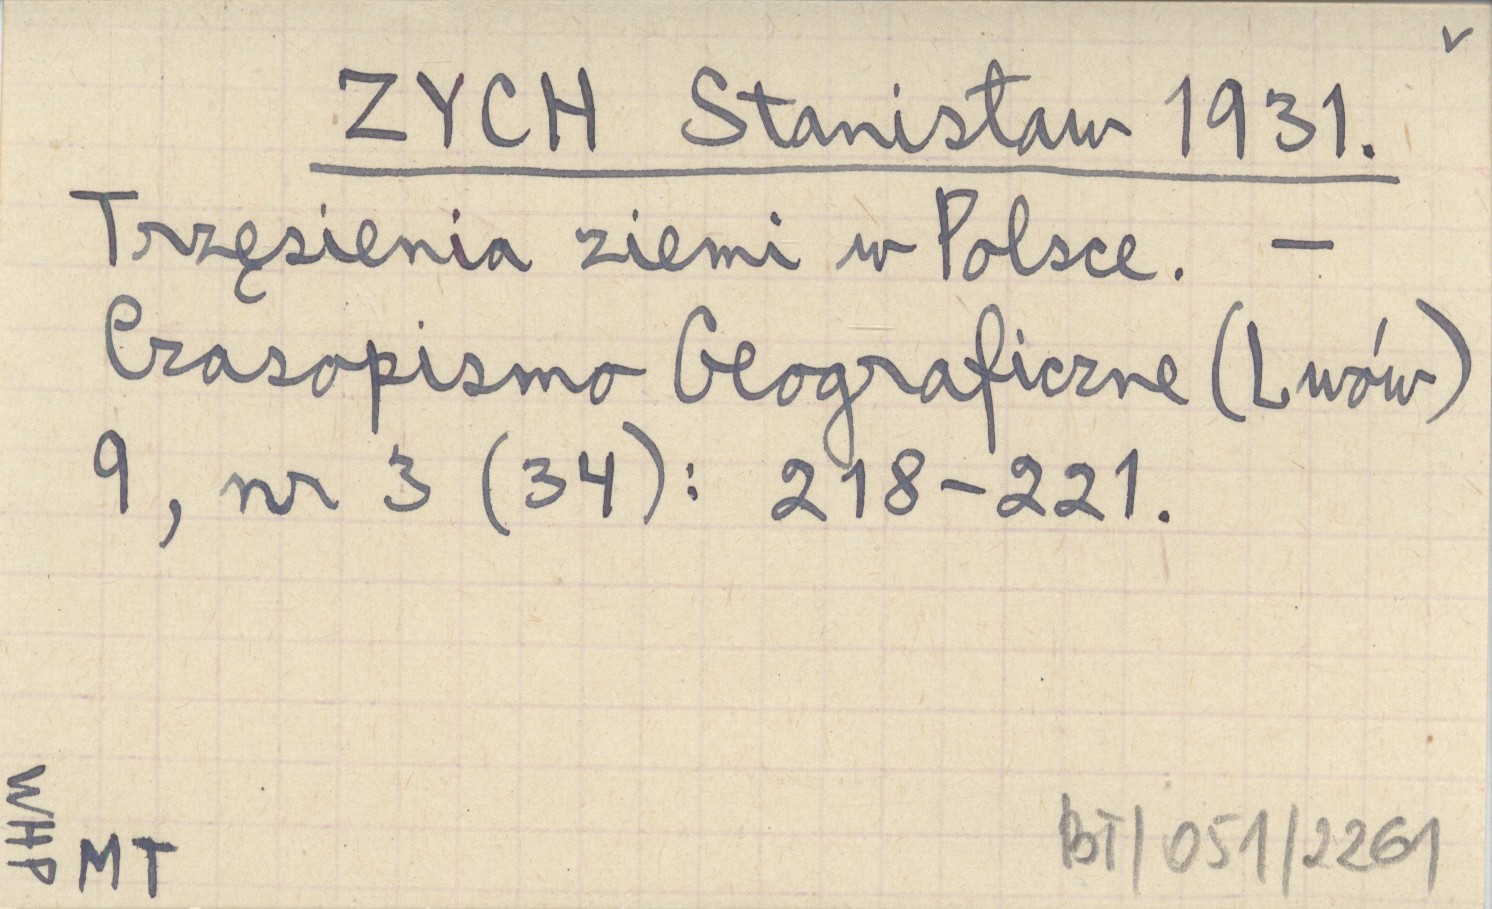 v
ZYCH Stanisław 1931.
Trzęsienia ziemi w Polsce. —
Czasopismo Geograficzne (Lwów)
9, nr 3 (34): 218-221.
WHP
MT
BT/051/2261